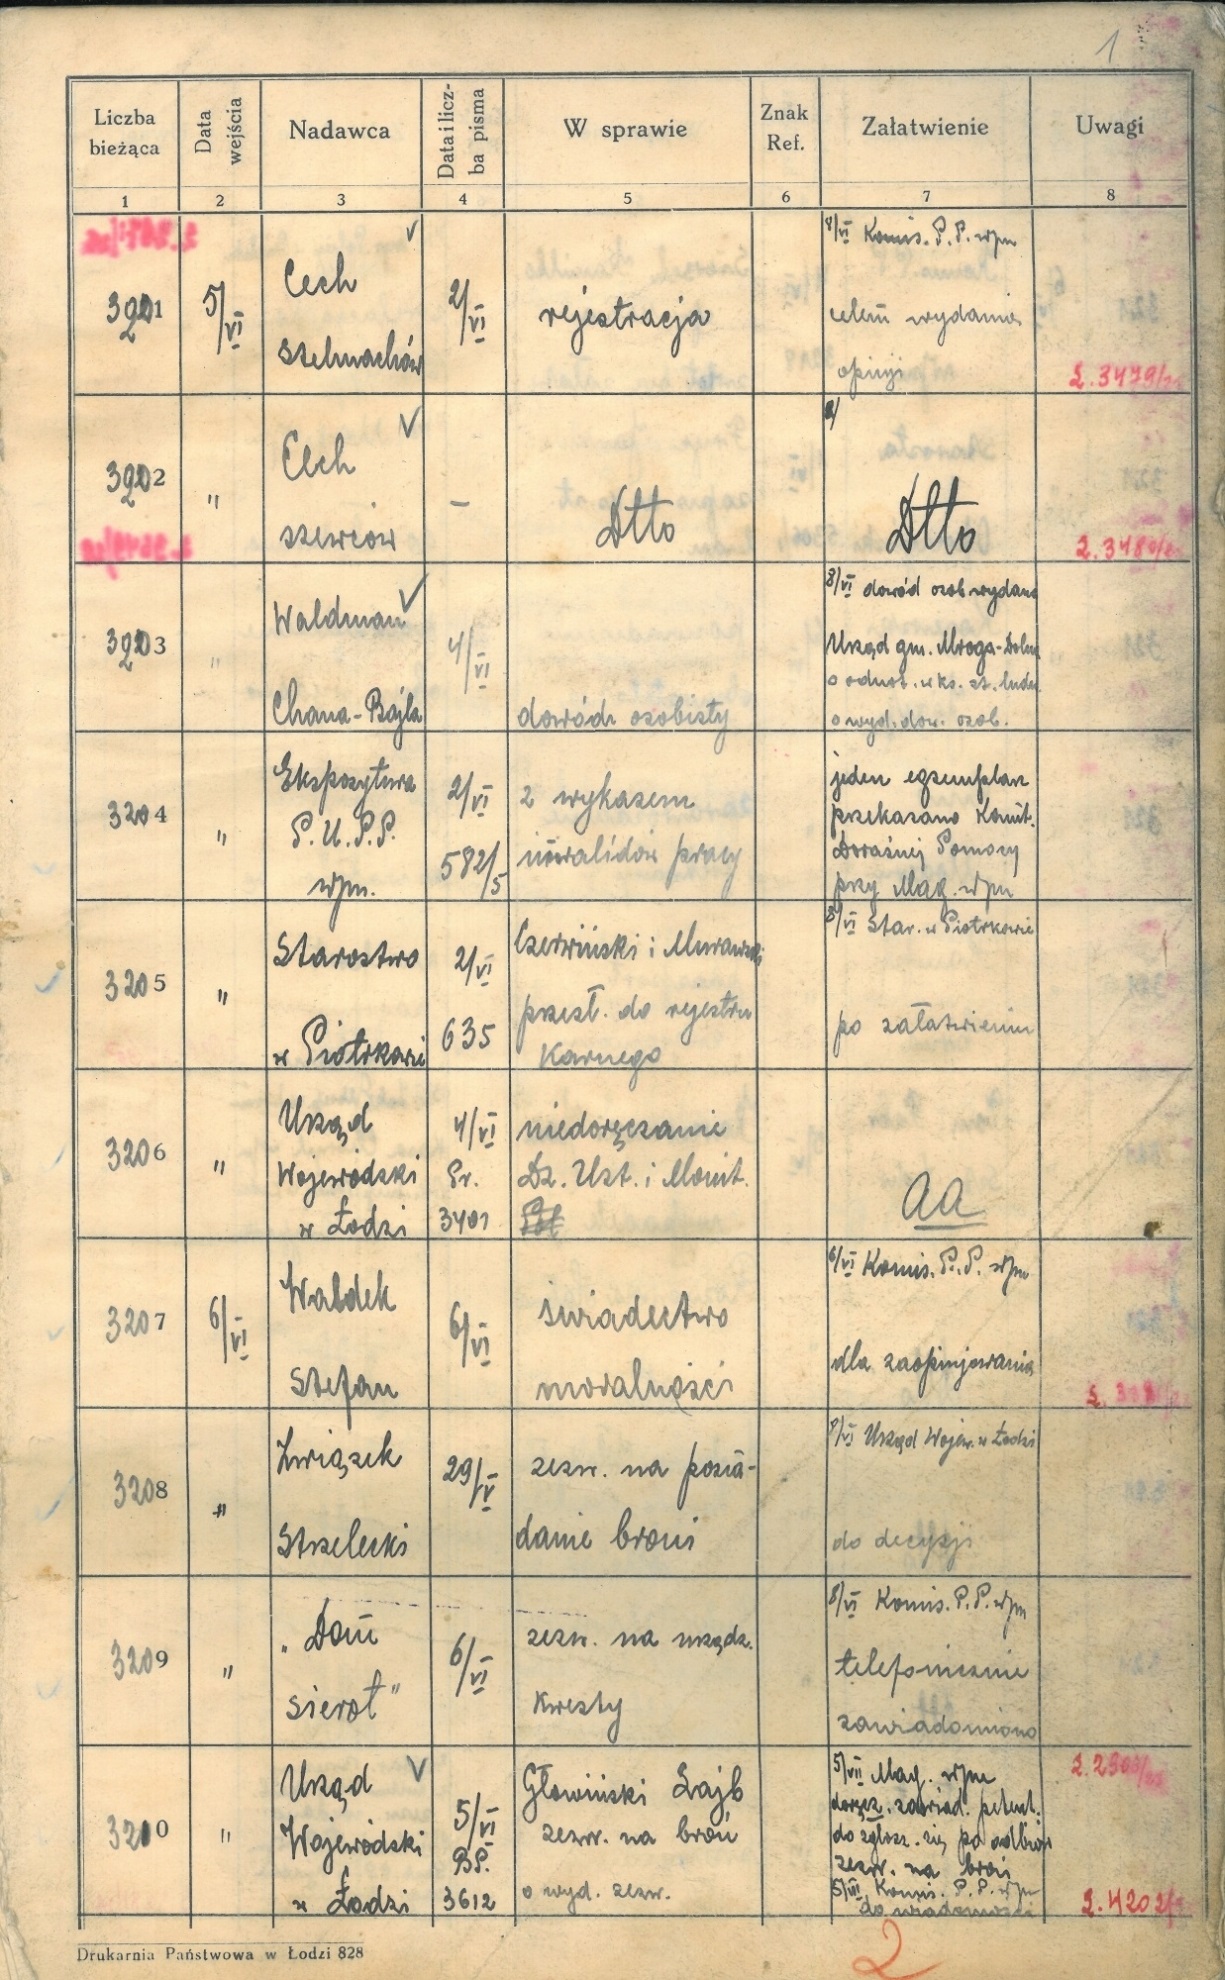 1
Liczba bieżąca | Data wejścia | Nadawca | Data i liczba pisma | W sprawie | Znak Ref. | Załatwienie | Uwagi
1 2 3 4 5 6 7 8
8/VI Komis. P. P. wjm
3201 5/VI Cech 2/VI rejestracja celem wydania
szelmachów opinji 2.3479/
Cech
3202 " – Dtto Dtto
szewców 2.3480/
Waldman 8/VI dowód osob. wydano
3203 " 4/VI Urząd gm. Mroga-Dolna
o odnot. w ks. st. ludn.
Chana-Bajla dowód osobisty o wyd. dow. osob.
Ekspozytura 2/VI z wykazem jeden egzemplarz
3204 " P.U.P.P. przekazano Komit.
582/5 inwalidów pracy Doraźnej Pomocy
wjm. przy Mag. wjm
Starostwo 2/VI Czerwiński i Murawski 8/VI Star. w Piotrkowie
3205 " 635 przesł. do rejestru po załatwieniu
w Piotrkowie karnego
Urząd 4/VI niedoręczanie
3206 " Wojewódzki Pr. Dz. Ust. i Monit.
w Łodzi 3401 aa
Waldek 6/VI Komis. P. P. wjm
3207 6/VI 6/VI świadectwo
Stefan moralności dla zaopinjowania
Związek 7/VI Urząd Wojew. w Łodzi
3208 " 29/V zezw. na posia-
Strzelecki danie broni do decyzji
"Dom 8/VI Komis. P. P. wjm
3209 " 6/VI zezw. na urządz. telefonicznie
sierot" kwesty zawiadomiono
Urząd Głowiński Lajb 5/VII Mag. wjm
3210 " Wojewódzki 5/VI zezw. na broń doręcz. zawiad. petent.
do zgłosz. się po odbiór
BP. zezw. na broń
w Łodzi 3612 o wyd. zezw. 5/VII Komis. P. P. wjm
do wiadomości 2.4202/
Drukarnia Państwowa w Łodzi 828
2